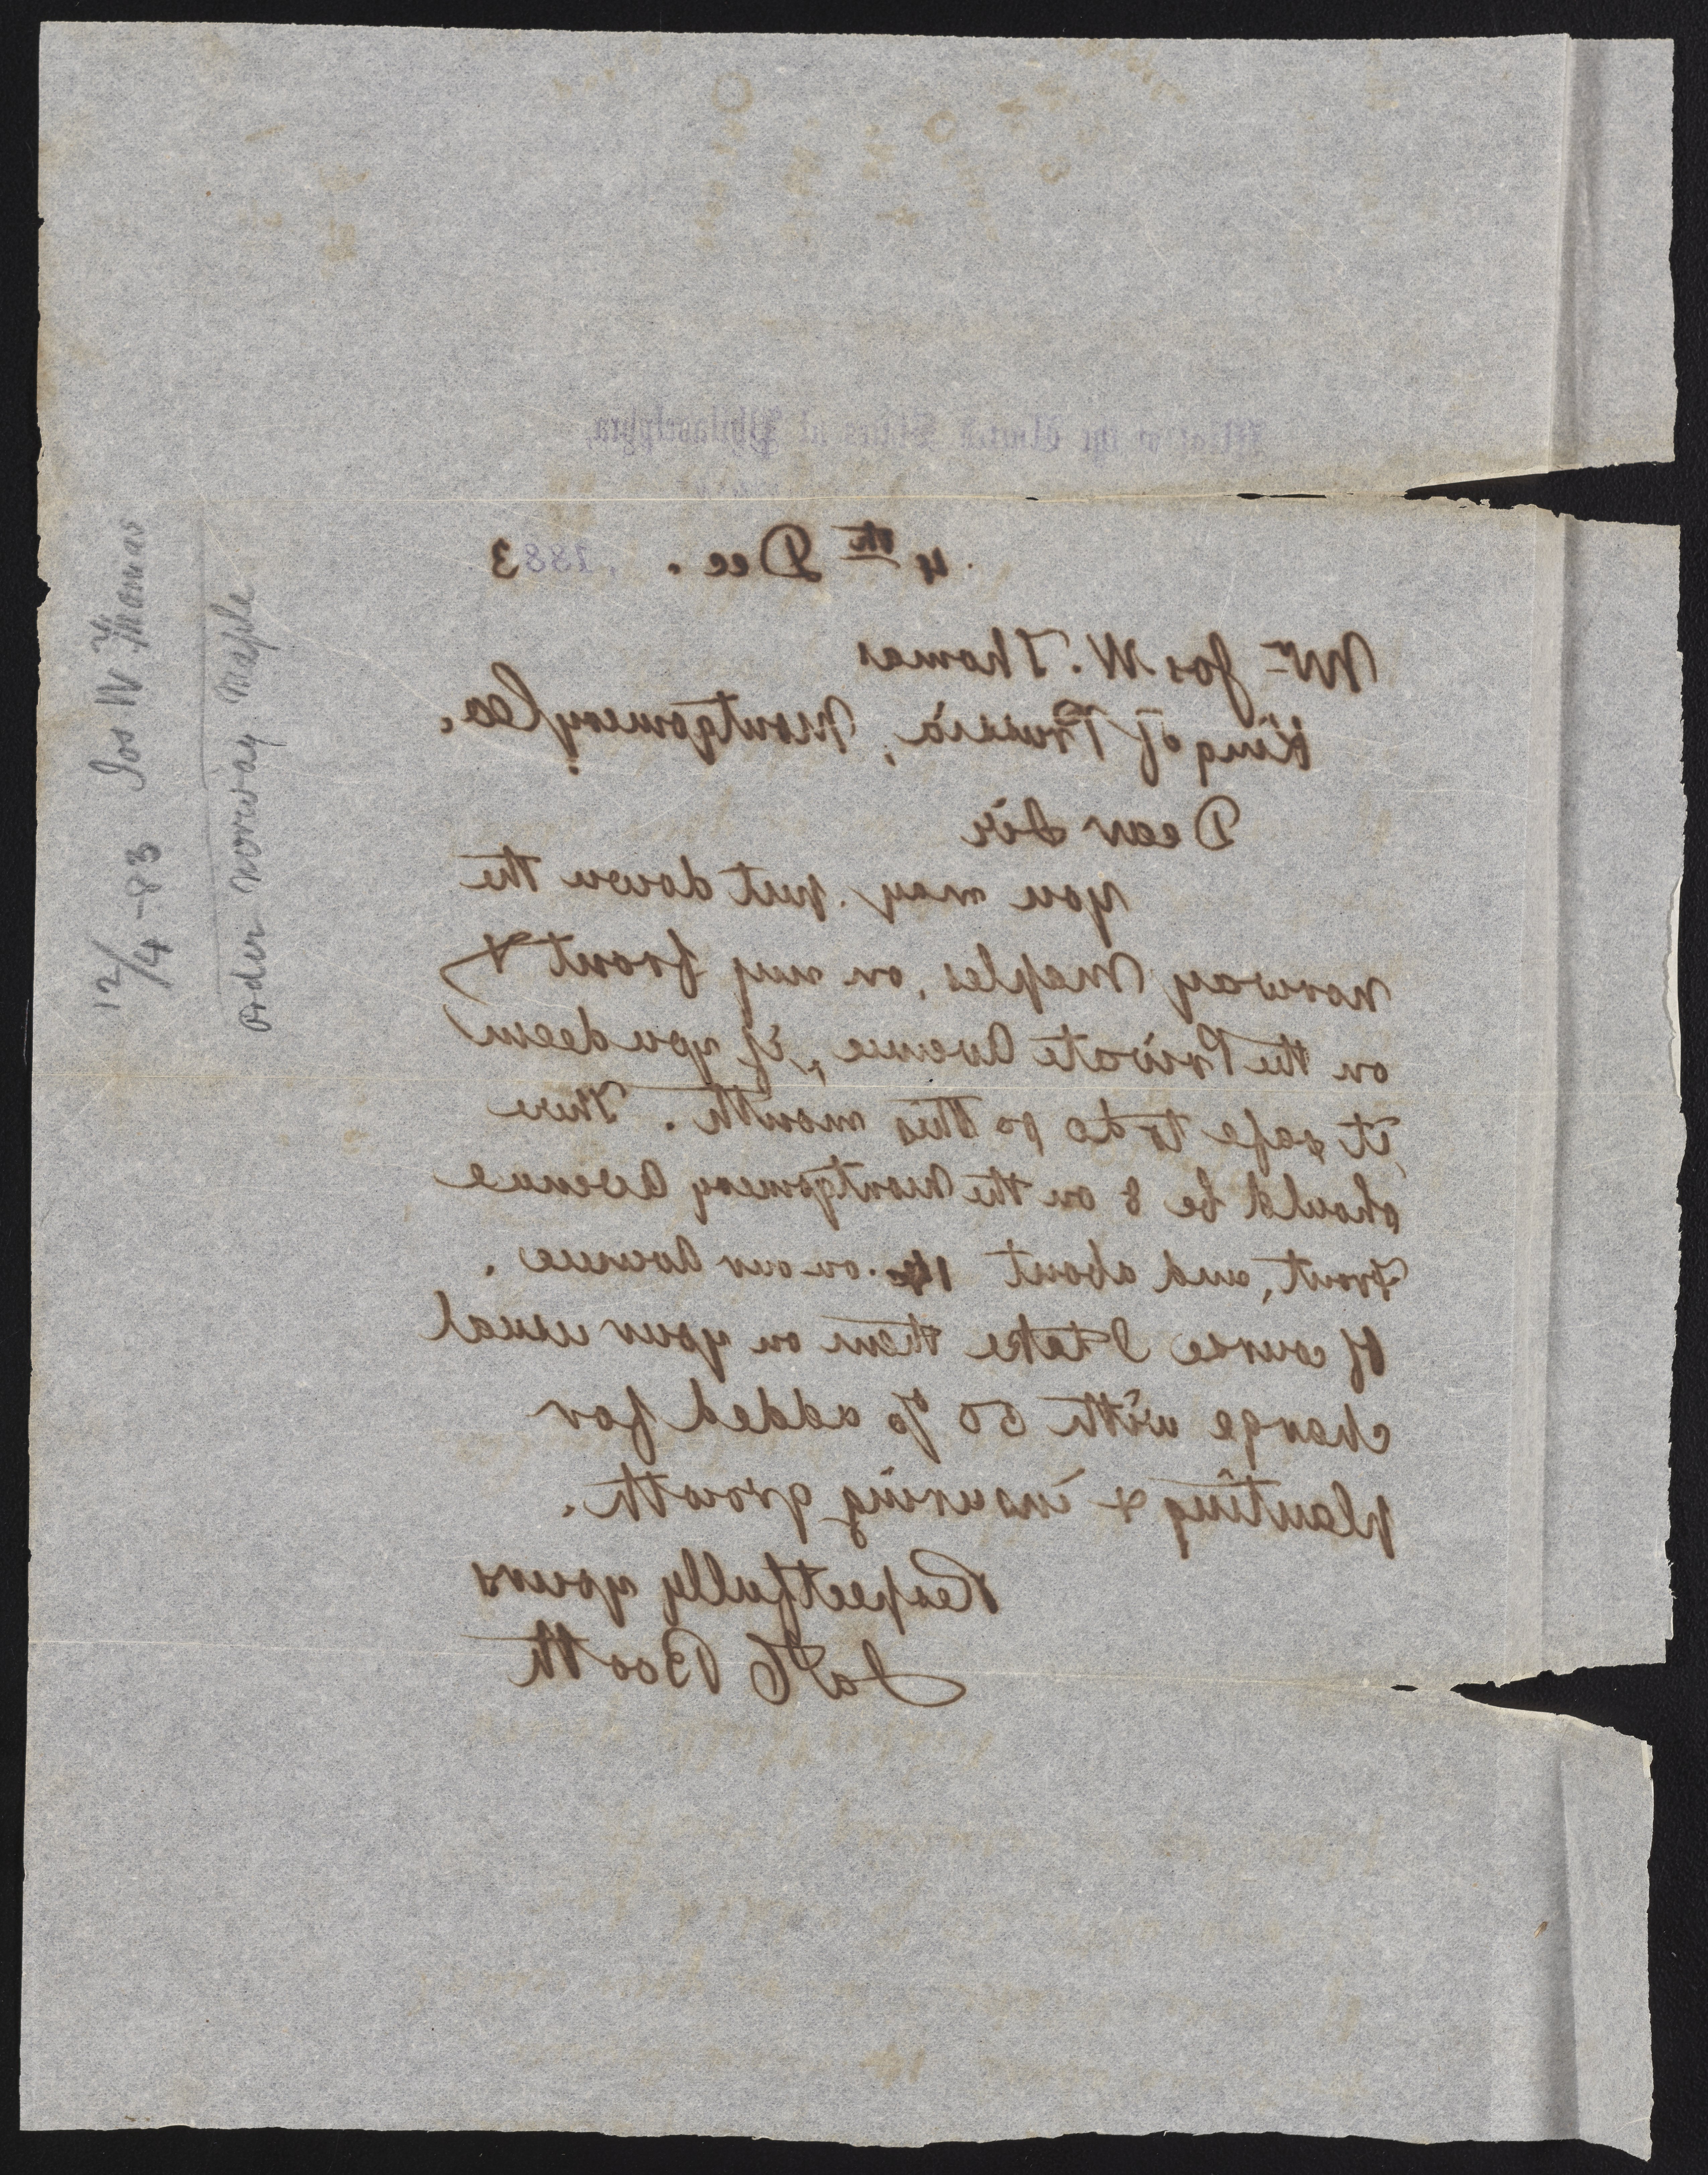 12/4-83 Jos W Thomas
Order Norway Maple
Mint of the United States at Philadelphia,
4th Dec. , 1883
Mr Jos W. Thomas
King of Prussia, Montgomery Co.
Dear Sir
You may put down the
Norway Maples, on my front &
on the Private Avenue, if you deem
it safe to do so this month. There
should be 8 on the Montgomery Avenue
front, and about on our Avenue.
Of course I take them on your usual
charge with 50 % added for
planting & insuring growth.
Respectfully yours
Ja C Booth